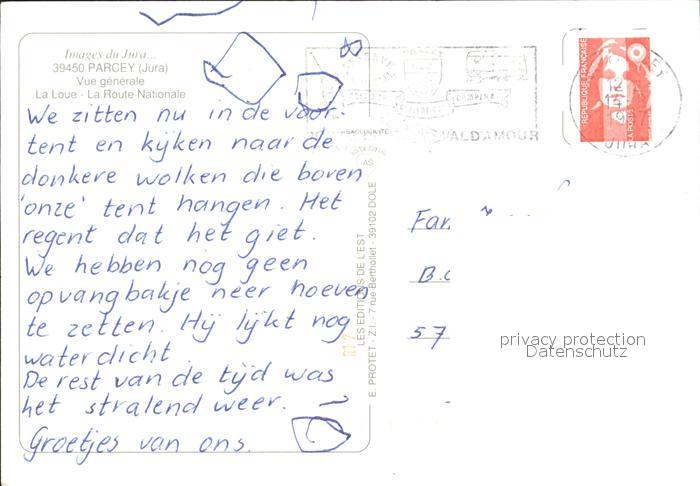 Images du Jura...
39450 PARCEY (Jura)
Vue générale
La Loue - La Route Nationale
We zitten nu in de voor-
tent en kijken naar de
donkere wolken die boven
'onze' tent hangen. Het
regent dat het giet.
We hebben nog geen
opvangbakje neer hoeven
te zetten. Hij lijkt nog
waterdicht
De rest van de tijd was
het stralend weer.
Groetjes van ons.
LES EDITIONS DE L'EST
E. PROTET - Z.I. - 7 rue Berthollet - 39102 DOLE
PARCEY
CAMPING
VAL D'AMOUR
RÉPUBLIQUE FRANÇAISE
LA POSTE
Fam
B.
57
privacy protection
Datenschutz